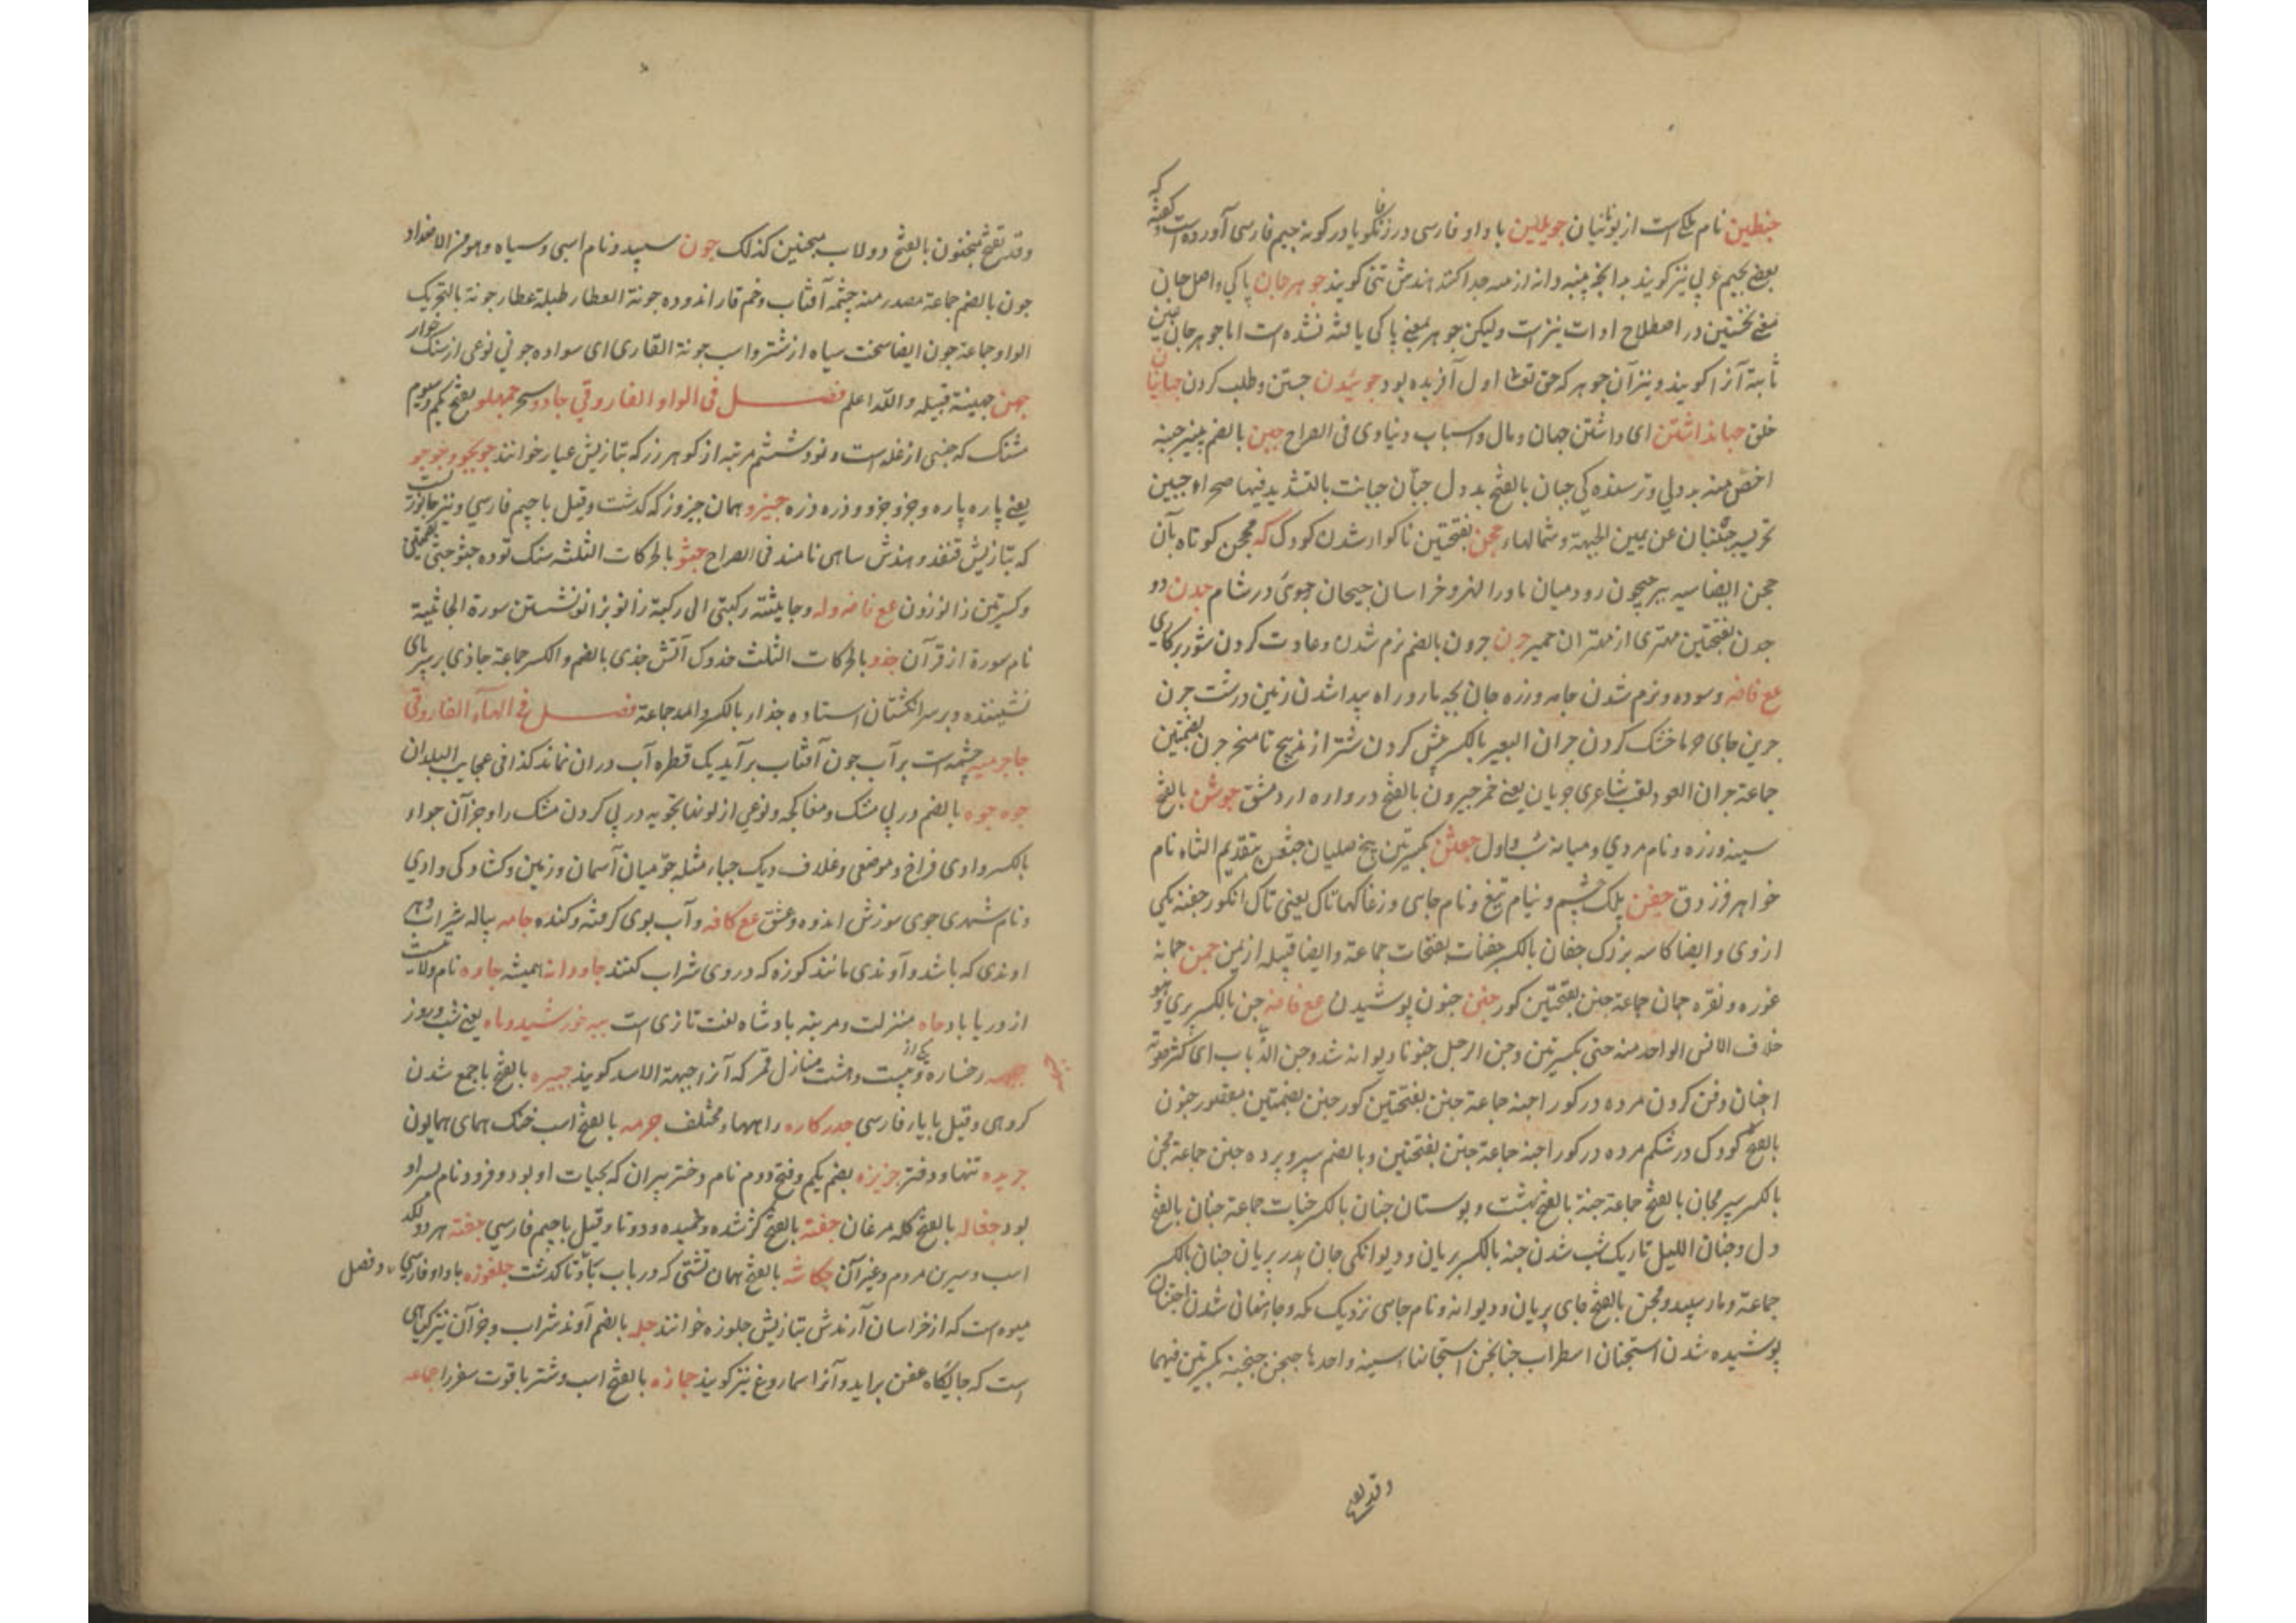 جنطین نام ملکی است از یونانیان جویلین با واو فارسی در زنگویا در کونه جیم فارسی آورده است و گفته که
بعضی بجیم عربی نیز گویند بدانچه پنبه دانه ازمه جدا کنند هندش گویند جوهر جان پاکی و اصل جان
معنی نخستین در اصطلاح ادات نیز است ولیکن جوهر بمعنی پاکی یافته نشده است اما جوهر جان عین
ثابته آنرا گویند و نیز آن جوهر که حق تعالی اول آفریده بود جوئیدن جستن و طلب کردن جهانیان
خلق جهانداشتن ای داشتن جهان و مال و اسباب دنیاوی فی الصراح جبن بالضم پنیر جبنه
اخص منه بددلی و ترسندگی جبان بالفتح بددل جبّان جبانت بالتشدید فیها صحراء جبین
جبینان عن یمین الجبهة و شمالها جحن بفتحتین ناگوار شدن کودک که جحن کوتاه بآن
جحن ایضا سیه پیر جیحون رود میان ماوراالنهر و خراسان جیحان جوی در شام جدن دو
جدن بفتحتین مهتری از مهتران حمیر جرن جرون بالضم نرم شدن و عادت کردن ستور بر کاری
مع فاضه و سوده و نرم شدن جامه و زره جان بچه مار و راه پیدا شدن زمین درشت جرن
جرین جای خرما خشک کردن جران البعیر بالکسر پیش گردن شتر از مذبح تا منحر جرن بضمتین
جماعة جران العود لقب شاعری جریان یعنی خمر جیرون بالفتح دروازه از دمشق جوشن بالفتح
سینه و زره و نام مردی و میانه شب و اول جعثن بکسرتین بیخ صلیان جثعن بتقدیم الثاء نام
خواهر فرزدق جفن پلک چشم و نیام تیغ و نام جای و زغاکهاتاک یعنی تاک انگور جفنة یکی
ازوی و ایضا کاسه بزرگ جفان بالکسر جفنات بفتحات جماعة و ایضا قبیله از یمن جمن جمانه
غوره و نقره جمان جماعة جنن بفتحتین گور جنن جنون پوشیدن مع فاضه جن بالکسر پری و هو
خلاف الانس الواحد منه جنی بکسرتین و جن الرجل جنونا دیوانه شد و جن الذباب ای کثر صوته
اجنان دفن کردن مرده در گور اجنه جماعة جنن بفتحتین گور جنن بضمتین مقصور جنون
بالفتح کودک در شکم مرده در گور اجنة جماعة جنن بفتحتین و بالضم سپر و پرده جنن جماعة مجن
بالکسر سپر مجان بالفتح جماعة جنة بالفتح بهشت و بوستان جنان بالکسر جنات جماعة جنان بالفتح
دل و جنان اللیل تاریک شب شدن جنه بالکسر پریان و دیوانگی جان پدر پریان جنان بالکسر
جماعة و مار سپید و مجن بالفتح جای پریان و دیوانه و نام جای نزدیک مکه و جا پنهان شدن اجتنان
پوشیده شدن استجنان اضطراب جناجن استخانها سینه واحدها جنجن جنجنة بکسرتین فیهما
وقد یفتح
وقد یفتح منجنون بالفتح دولاب منجنین کذلک جون سپید و نام اسپی و سیاه و هو من الاضداد
جون بالضم جماعة مصدر منه چشمه آفتاب و خم قار اندوده جونة العطار طبلة عطار جونة بالتحریک
الواو جماعة جون ایضا سخت سیاه از شتر و اسب جونة القاری ای سواده جونی نوعی از سنگ خوار
جهن جهینة قبیله والله اعلم فصل فی الواو الفاروقی جادو سحر جمهلو بفتح یکم و سیوم
مشنگ که جنسی از غله است و نود و ششم مرتبه از گوهر زر که بتازیش عیار خوانند جوجو و جوجو
یعنی پاره پاره و جزو جزو و ذره ذره جیزو همان جیزو که گذشت و قیل با جیم فارسی و نیز جانوریست
که بتازیش قنفذ و هندش ساهی نامند فی الصراح جثو بالحرکات الثلثه سنگ توده جثو جثی بضمتین
و کسرتین زانو زدن مع فاضه وله و جاثیته رکبتی الی رکبة زانو بزانو نشستن سورة الجاثیة
نام سورة از قرآن جذو بالحرکات الثلث خدوک آتش جذی بالضم و الکسر جماعة جاذی بر سر پای
نشیننده و بر سر انگشتان استاده جذار بالکسر واحد جماعة فصل فی الهآء الفاروقی
جاجرمیه چشمه است بر آب چون آفتاب برآید یک قطره آب دران نماند کذا فی عجایب البلدان
جوه جوه بالضم در پی مشک و مفاکچه و نوعی از لونها بجویه در پی کردن مشک را و جز آن جواء
بالکسر وادی فراخ و موضعی و غلاف دیک جباء مثله جو میان آسمان و زمین و گشادگی وادی
و نام شهری جوی سوزش اندوه و عشق مع کافه و آب بوی گرفته و گنده جامه پیاله شراب و هر
اوندی که باشد و آوندی مانند کوزه که دروی شراب کنند جاودانه همیشه جاوه نام ولایتیست
از دریا باد جاه منزلت و مرتبه بادشاه لغت تازی است جبه خورشید و ماه یعنی شب و روز
جبهه رخساره و یکی از بیست و هشت منازل قمر که آنرا جبهة الاسد گویند جبیره بالفتح با جمع شدن
گروهی و قیل با یار فارسی جدرکاره راهها مختلف جرمه بالفتح اسب خنگ همای همایون
جریده تنها و دفتر جزیزه بضم یکم و فتح دوم نام دختر پیران که بحیات او بود و فرود نام پسر او
بود جفاله بالفتح گله مرغان جفته بالفتح کژ شده و خمیده و دوتا و قیل باجیم فارسی جفته هر دو لگد
اسب و سیرین مردم و غیر آن جکاشه بالفتح همان تشتی که در باب بتا گذشت جلغوزه با واو فارسی و فصل
میوه است که از خراسان آرندش بتازیش جلوزه خوانند جله بالضم آوند شراب و جز آن نیز گیاهی
است که جایگاه عفن برآید و آنرا سماروغ نیز گویند جمازه بالفتح اسب و شتر باقوت سفر را جماعه